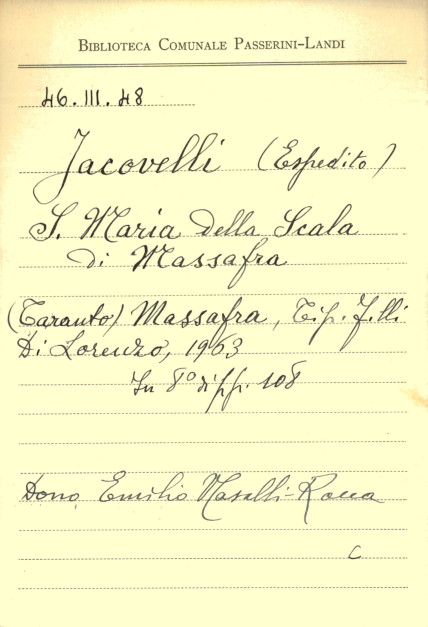 BIBLIOTECA COMUNALE PASSERINI-LANDI
46.III.48
Jacovelli (Espedito)
S. Maria della Scala
di Massafra
(Taranto) Massafra, Tip. F.lli
Di Lorenzo, 1963
In 8° di pp. 108
Dono Emilio Nasalli-Rocca
C